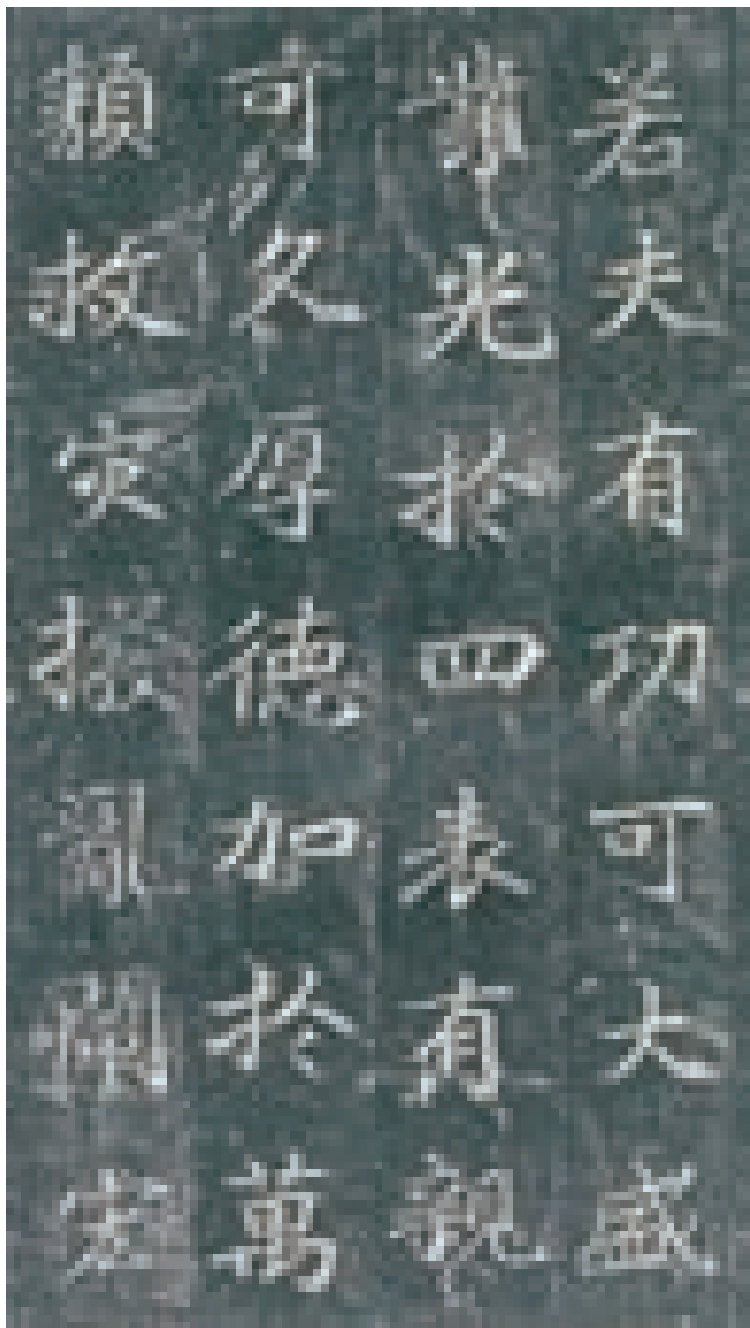 若夫有功可大盛
業光於四表有親
可久厚德加於萬
類救灾拯亂開宏